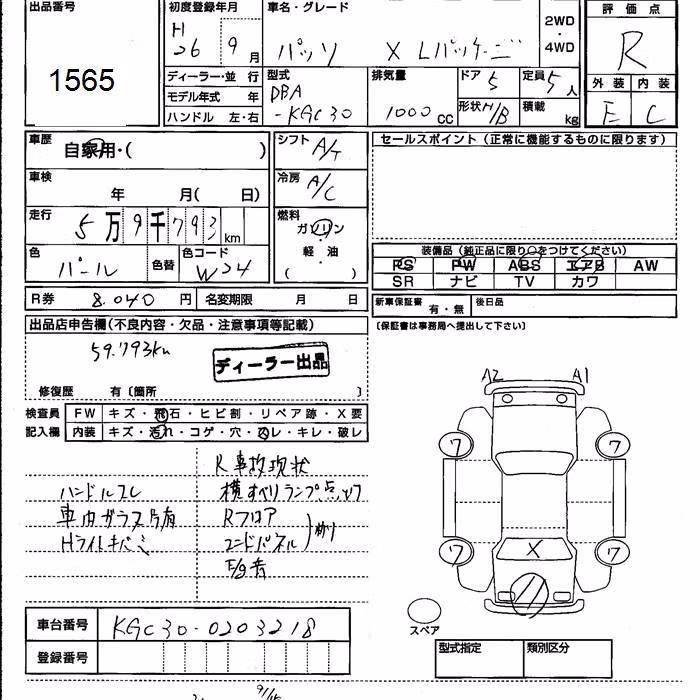 出品番号
1565
初度登録年月
H
26 9月
車名・グレード
パッソ X Lパッケージ
2WD
・
4WD
評価点
R
ディーラー・並行
モデル年式 年
ハンドル 左・右
型式
DBA
-KGC30
排気量
1000 cc
ドア 5
定員 5人
形状 H/B
積載 kg
外装 内装
E C
車歴
自家用・( )
シフト A/T
セールスポイント (正常に機能するものに限ります)
車検
年 月( 日)
冷房 A/C
走行
5万9千793km
燃料
ガソリン
・
軽・油
( )
色
パール
色替
色コード
W24
装備品 (純正品に限り○をつけてください)
PS PW ABS エアB AW
SR ナビ TV カワ
R券 8.040 円 名変期限 月 日
新車保証書 有・無 後日品
(保証書は事務局へ提出して下さい)
出品店申告欄(不良内容・欠品・注意事項等記載)
59.793km
ディーラー出品
修復歴 有〔箇所 〕
検査員
記入欄
FW キズ・飛石・ヒビ割・リペア跡・X要
内装 キズ・汚れ・コゲ・穴・スレ・キレ・破レ
R事故現状
ハンドルスレ
横すべりランプ点
車内ガラス片有
Rフロア
Hライトキバミ
エンドパネル
A2 A1
ワ ワ
ワ ワ
X
スペア
車台番号 KGC30-0203218
登録番号
型式指定 類別区分